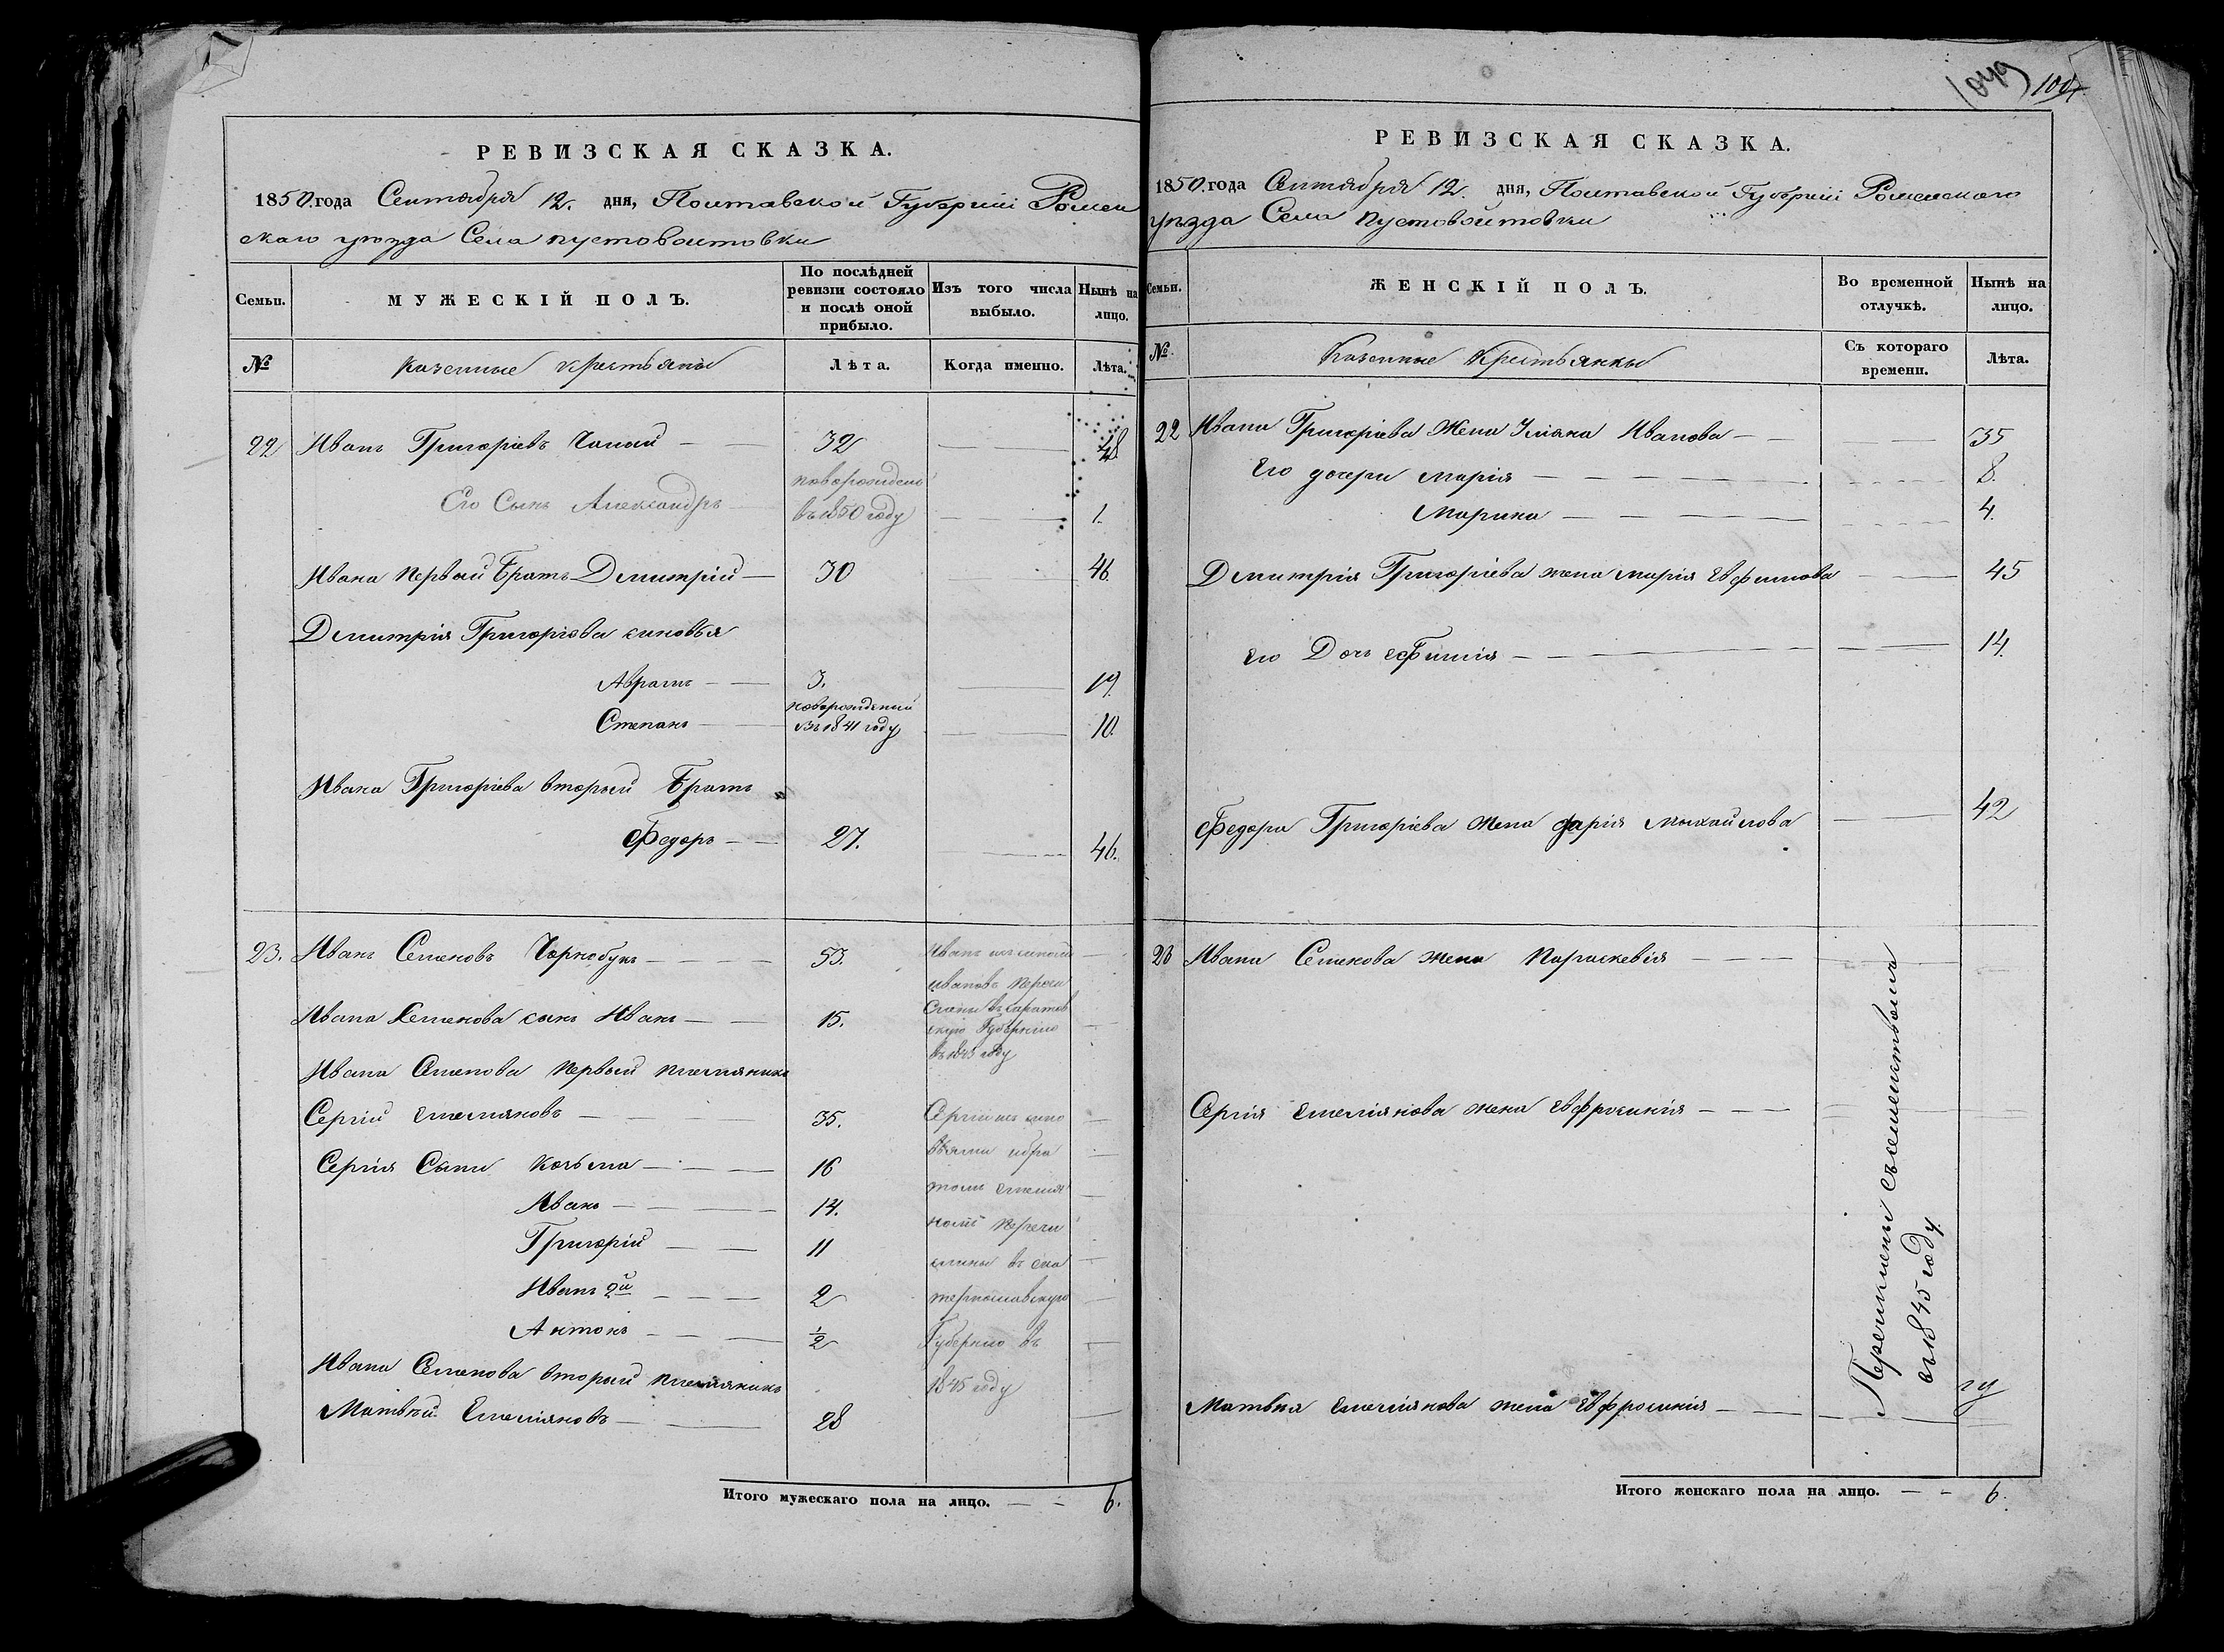 РЕВИЗСКАЯ СКАЗКА.
1850. года Сентября 12. дня, Полтавской Губерніи Ромен
скаго уѣзда Села пустовоитовки
Семьи.
МУЖЕСКІЙ ПОЛЪ.
По послѣдней
ревизіи состояло
и послѣ оной
прибыло.
Изъ того числа
выбыло.
Нынѣ на
лицо.
№
Казенные крестьяны
Лѣта.
Когда именно.
Лѣта.
22 Иванъ Григоріевъ 32 48
Его Сынъ Александръ новорожденъ
въ 1850 году 1.
Ивана первый Братъ Димитрій 30 46.
Димитрія Григоріева синовья
Аврамъ 3. 19.
Степанъ новорожденый
въ 1841 году 10.
Ивана Григоріева вторый Братъ
Федоръ 27. 46.
23. Иванъ Семеновъ Чорнобукъ 53.
Иванъ съ сыномъ
Иваномъ перечи
слены въ саратов
скую Губернію
въ 1845 году
Ивана Семенова сынъ Иванъ 15.
Ивана Семенова первый племяникъ
Сергій Емеліяновъ 35.
Сергій съ сыно
вьями и бра
томъ Емелія
перечи
слены въ ека
теринославскую
Губернію въ
1845 году
Сергія Сыны Козьма 16
Иванъ 14.
Григорій 11
Иванъ 2й 2
Антонъ ½
Ивана Семенова вторый племяникъ
Матвѣй Емеліяновъ 28
Итого мужескаго пола на лицо. 6.
1049 104
РЕВИЗСКАЯ СКАЗКА.
1850. года Сентября 12. дня, Полтавской Губерніи Роменскаго
уѣзда Села Пустовойтовки
Семьи.
ЖЕНСКІЙ ПОЛЪ.
Во временной
отлучкѣ.
Нынѣ на
лицо.
№
Казенные Крестьянки
Съ котораго
времени.
Лѣта.
22 Ивана Григоріева Жена Уліяна Иванова 35
Его дочери Марія 8.
Марина 4.
Димитрія Григоріева жена марія Евфимова 45
Его Дочь Ефимія 14.
Федора Григоріева жена дарія михайлова 42
23 Ивана Семенова жена Параскевія
Сергія Емеліянова жена Евфросинія
Матвѣя Емеліянова жена Евфросинія
Перечислены съ семействомъ
въ 1845 году.
Итого женскаго пола на лицо. 6.